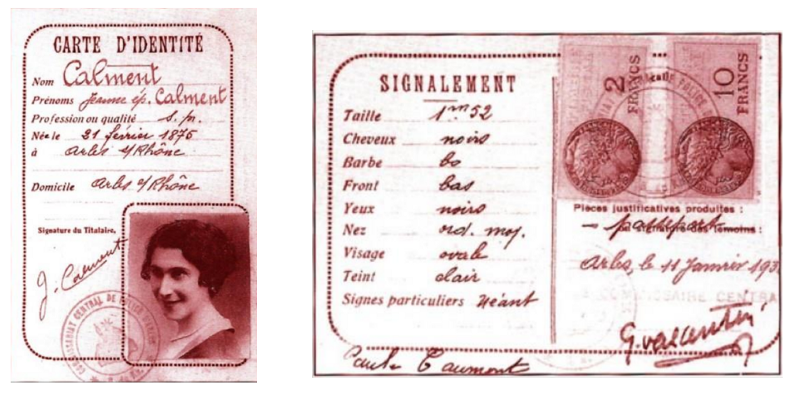 CARTE D'IDENTITÉ
Nom Calment
Prénoms Jeanne ép. Calment
Profession ou qualité s.p.
Née le 21 fevrier 1875
à Arles s/Rhône
Domicile Arles s/Rhône
Signature du Titulaire,
J. Calment
COMMISSARIAT CENTRAL DE POLICE
SIGNALEMENT
Taille 1m52
Cheveux noirs
Barbe
Front bas
Yeux noirs
Nez ord. moy.
Visage ovale
Teint clair
Signes particuliers Néant
2 FRANCS
10 FRANCS
Pièces justificatives produites :
témoins :
Arles, le 11 Janvier 193
COMMISSAIRE CENTRA
G. Valentin